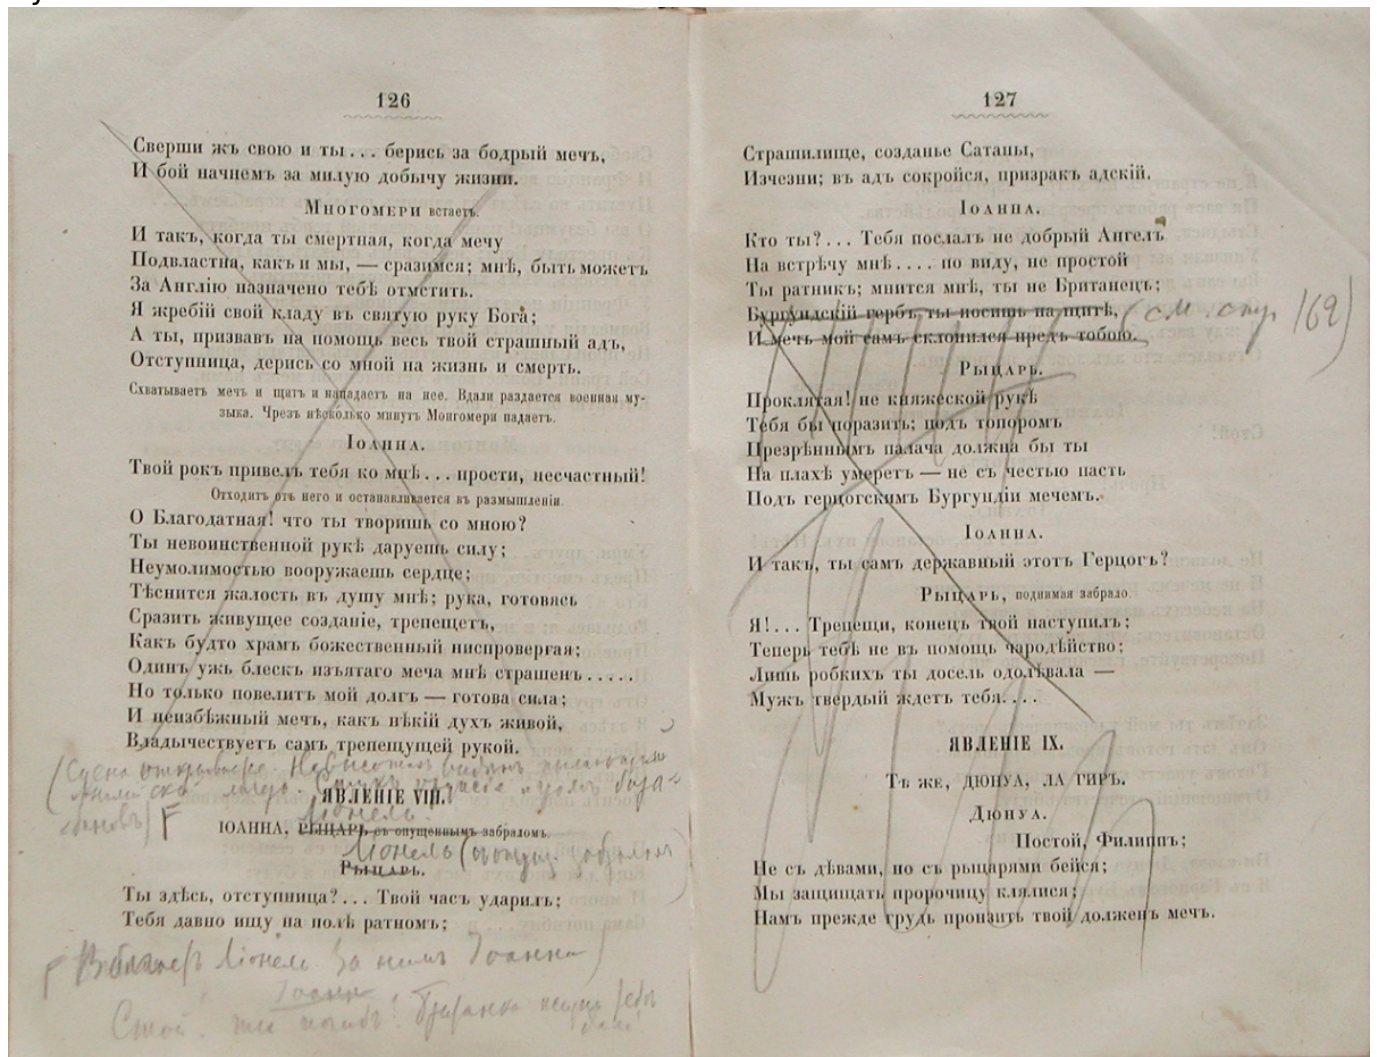 126
Сверши жъ свою и ты... берись за бодрый мечъ,
И бой начнемъ за милую добычу жизни.
Многомери встаетъ.
И такъ, когда ты смертная, когда мечу
Подвластна, какъ и мы, — сразимся; мнѣ, быть можетъ
За Англію назначено тебѣ отмстить.
Я жребій свой кладу въ святую руку Бога;
А ты, призвавъ на помощь весь твой страшный адъ,
Отступница, дерись со мной на жизнь и смерть.
Схватываетъ мечъ и щитъ и нападаетъ на нее. Вдали раздается военная му-
зыка. Чрезъ нѣсколько минутъ Монгомери падаетъ.
Іоанна.
Твой рокъ привелъ тебя ко мнѣ... прости, несчастный!
Отходитъ отъ него и останавливается въ размышленіи.
О Благодатная! что ты творишь со мною?
Ты невоинственной рукѣ даруешь силу;
Неумолимостью вооружаешь сердце;
Тѣснится жалость въ душу мнѣ; рука, готовясь
Сразить живущее созданіе, трепещетъ,
Какъ будто храмъ божественный ниспровергая;
Одинъ ужь блескъ изъятаго меча мнѣ страшенъ.....
Но только повелитъ мой долгъ — готова сила;
И неизбѣжный мечъ, какъ нѣкій духъ живой,
Владычествуетъ самъ трепещущей рукой.
(Сцена открывается.
ЯВЛЕНІЕ VIII.
Ліонель.
ІОАННА, РЫЦАРЬ съ опущеннымъ забраломъ.
Ліонель (
Рыцарь.
Ты здѣсь, отступница?... Твой часъ ударилъ;
Тебя давно ищу на полѣ ратномъ;
Ліонель За нимъ Іоанна)
Іоанна
Стой!
127
Страшилище, созданье Сатаны,
Изчезни; въ адъ сокройся, призракъ адскій.
Іоанна.
Кто ты?... Тебя послалъ не добрый Ангелъ
На встрѣчу мнѣ.... по виду, не простой
Ты ратникъ; мнится мнѣ, ты не Британецъ;
Бургундскій гербъ, ты носишь на щитѣ, (см. стр. 169)
И мечъ мой самъ склонился предъ тобою.
Рыцарь.
Проклятая! не княжеской рукѣ
Тебя бы поразить; подъ топоромъ
Презрѣннымъ палача должна бы ты
На плахѣ умереть — не съ честью пасть
Подъ герцогскимъ Бургундіи мечемъ.
Іоанна.
И такъ, ты самъ державный этотъ Герцогъ?
Рыцарь, поднимая забрало.
Я!... Трепещи, конецъ твой наступилъ;
Теперь тебѣ не въ помощь чародѣйство;
Лишь робкихъ ты досель одолѣвала —
Мужъ твердый ждетъ тебя....
ЯВЛЕНІЕ IX.
Тѣ же, ДЮНУА, ЛА ГИРЪ.
Дюнуа.
Постой, Филиппъ;
Не съ дѣвами, но съ рыцарями бейся;
Мы защищать пророчицу клялися;
Намъ прежде грудь пронзить твой долженъ мечъ.